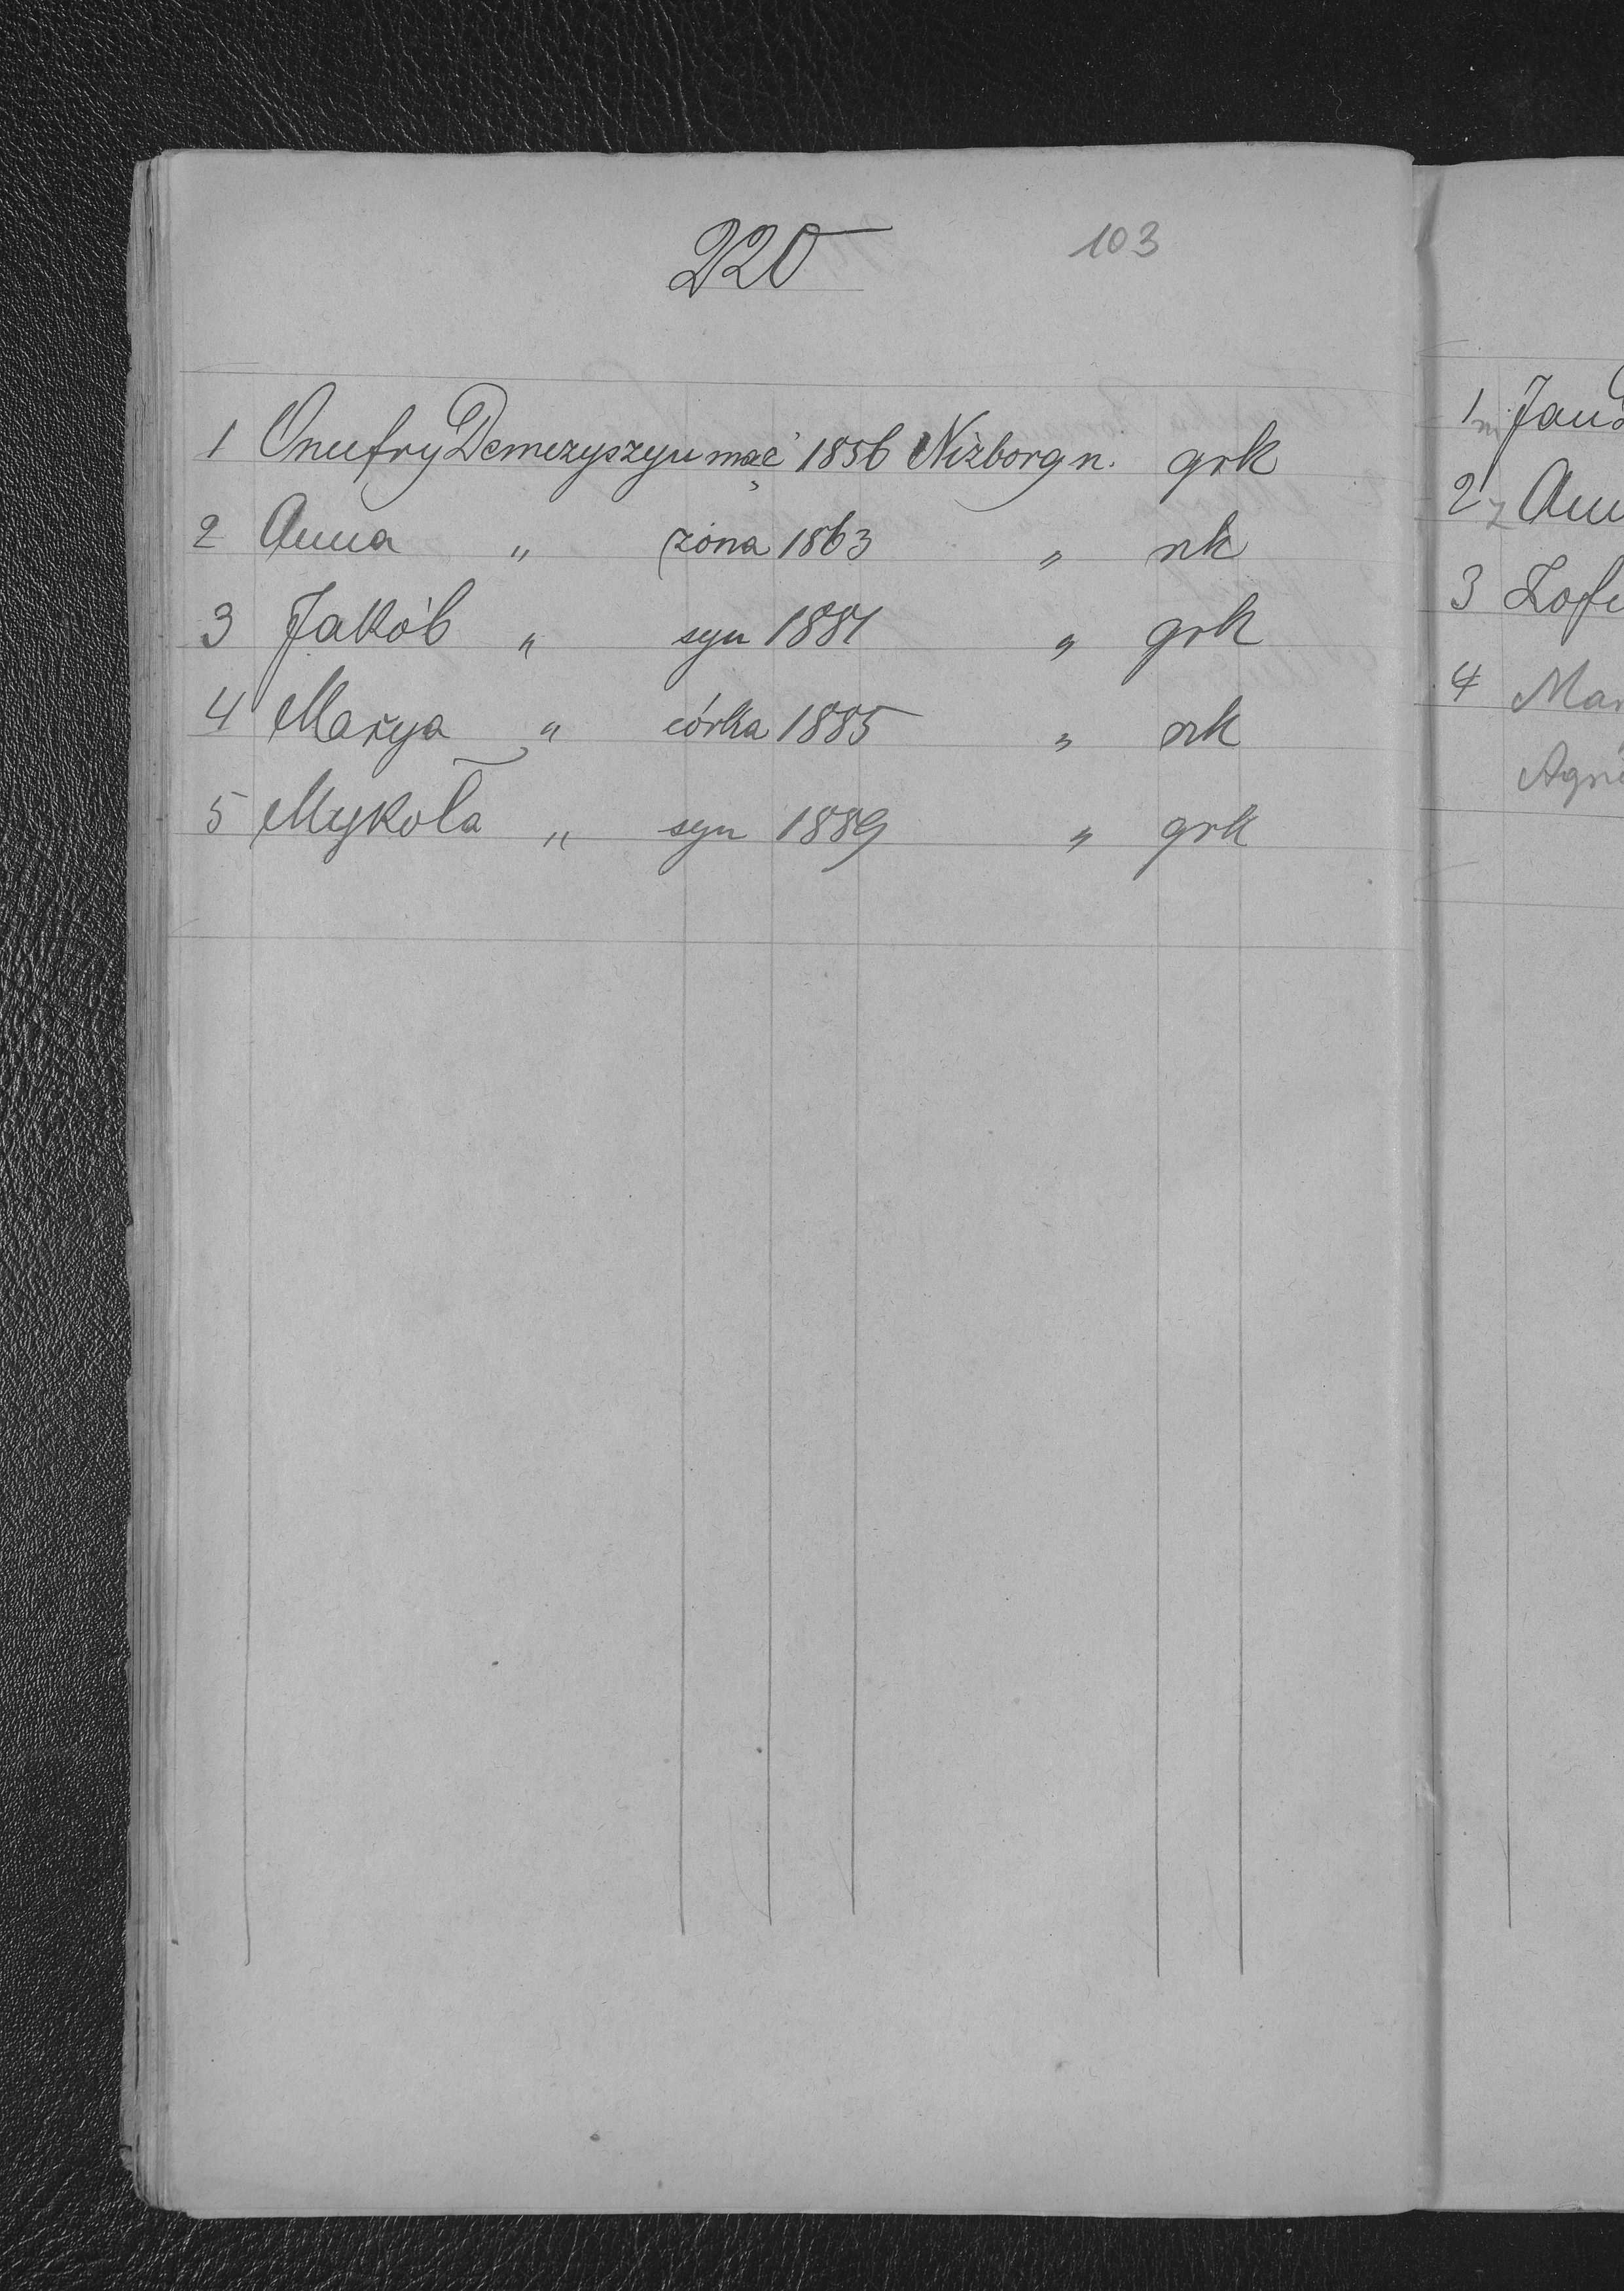 220
103
1 Onufry Demczyszyn mąż 1856 Niżborg n. grk
2 Anna " żona 1863 " rzk
3 Jakób " syn 1881 " grk
4 Marya " córka 1885 " rzk
5 Mykoła " syn 1889 " grk
1 Jan
2 Ann
3 Zofi
4 Mar
Agni